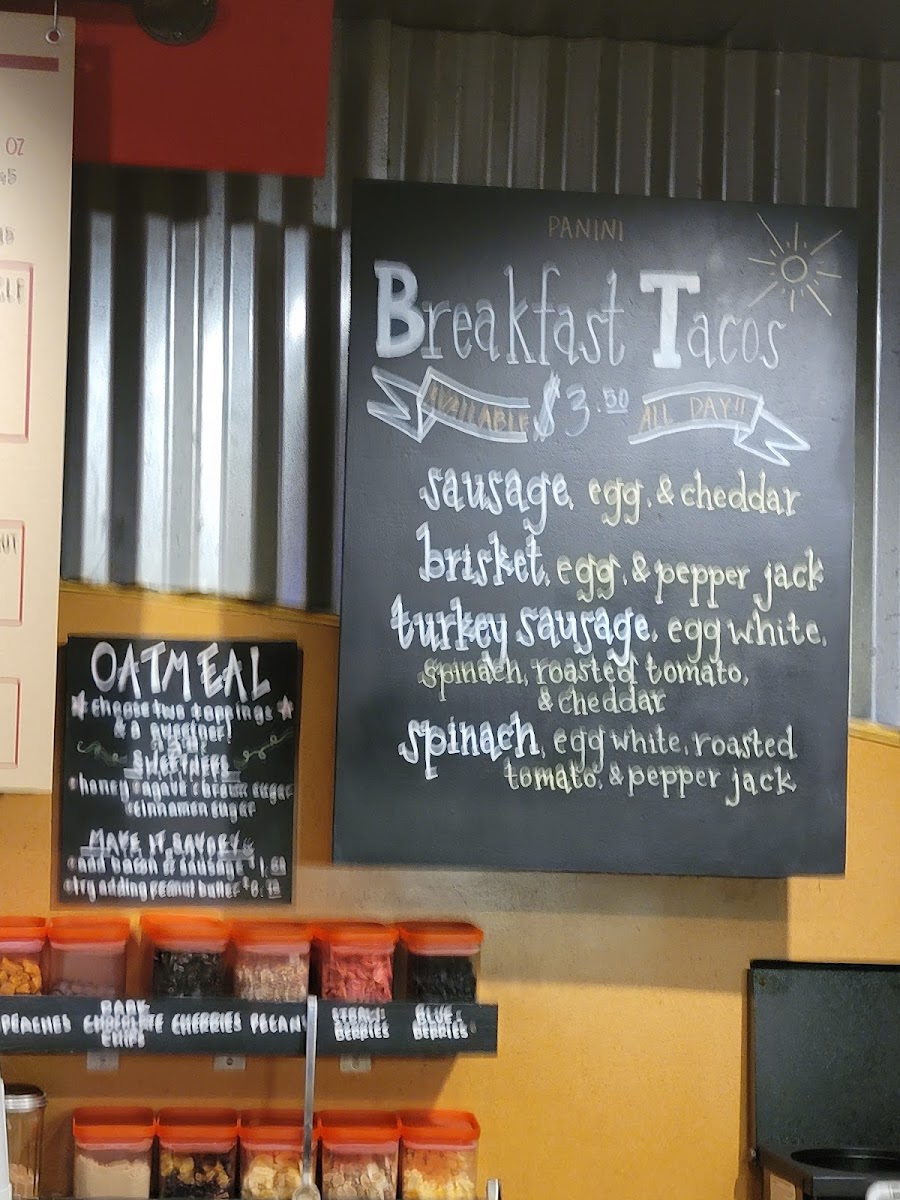 OZ
PANINI
Breakfast Tacos
AVAILABLE $3.50 ALL DAY!!
sausage, egg, & cheddar
brisket, egg, & pepper jack
turkey sausage, egg white,
spinach, roasted tomato,
& cheddar
spinach, egg white, roasted
tomato, & pepper jack
OATMEAL
choose two toppings
& a sweetener!
SWEETNERS
honey agave brown sugar
cinnamon sugar
MAKE IT SAVORY
add bacon or sausage
try adding peanut butter
PEACHES DARK CHOCOLATE CHIPS CHERRIES PECAN STRAW BERRIES BLUE BERRIES